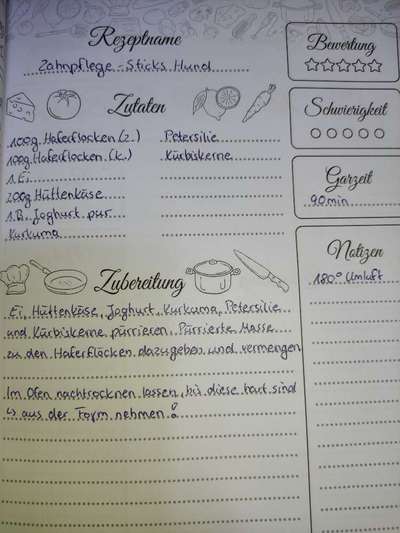 Rezeptname
Zahnpflege-Sticks Hund
Bewertung
Zutaten
Schwierigkeit
100g Haferflocken (z.) Petersilie
100g Haferflocken (k.) Kürbiskerne
1 Ei
200g Hüttenkäse
1 B. Joghurt pur
Kurkuma
Garzeit
90min
Zubereitung
Ei, Hüttenkäse, Joghurt, Kurkuma, Petersilie
und Kürbiskerne pürrieren. Pürrierte Masse
zu den Haferflocken dazugeben und vermengen
Im Ofen nachtrocknen lassen, bis diese hart sind
↳ aus der Form nehmen!
Notizen
180° Umluft